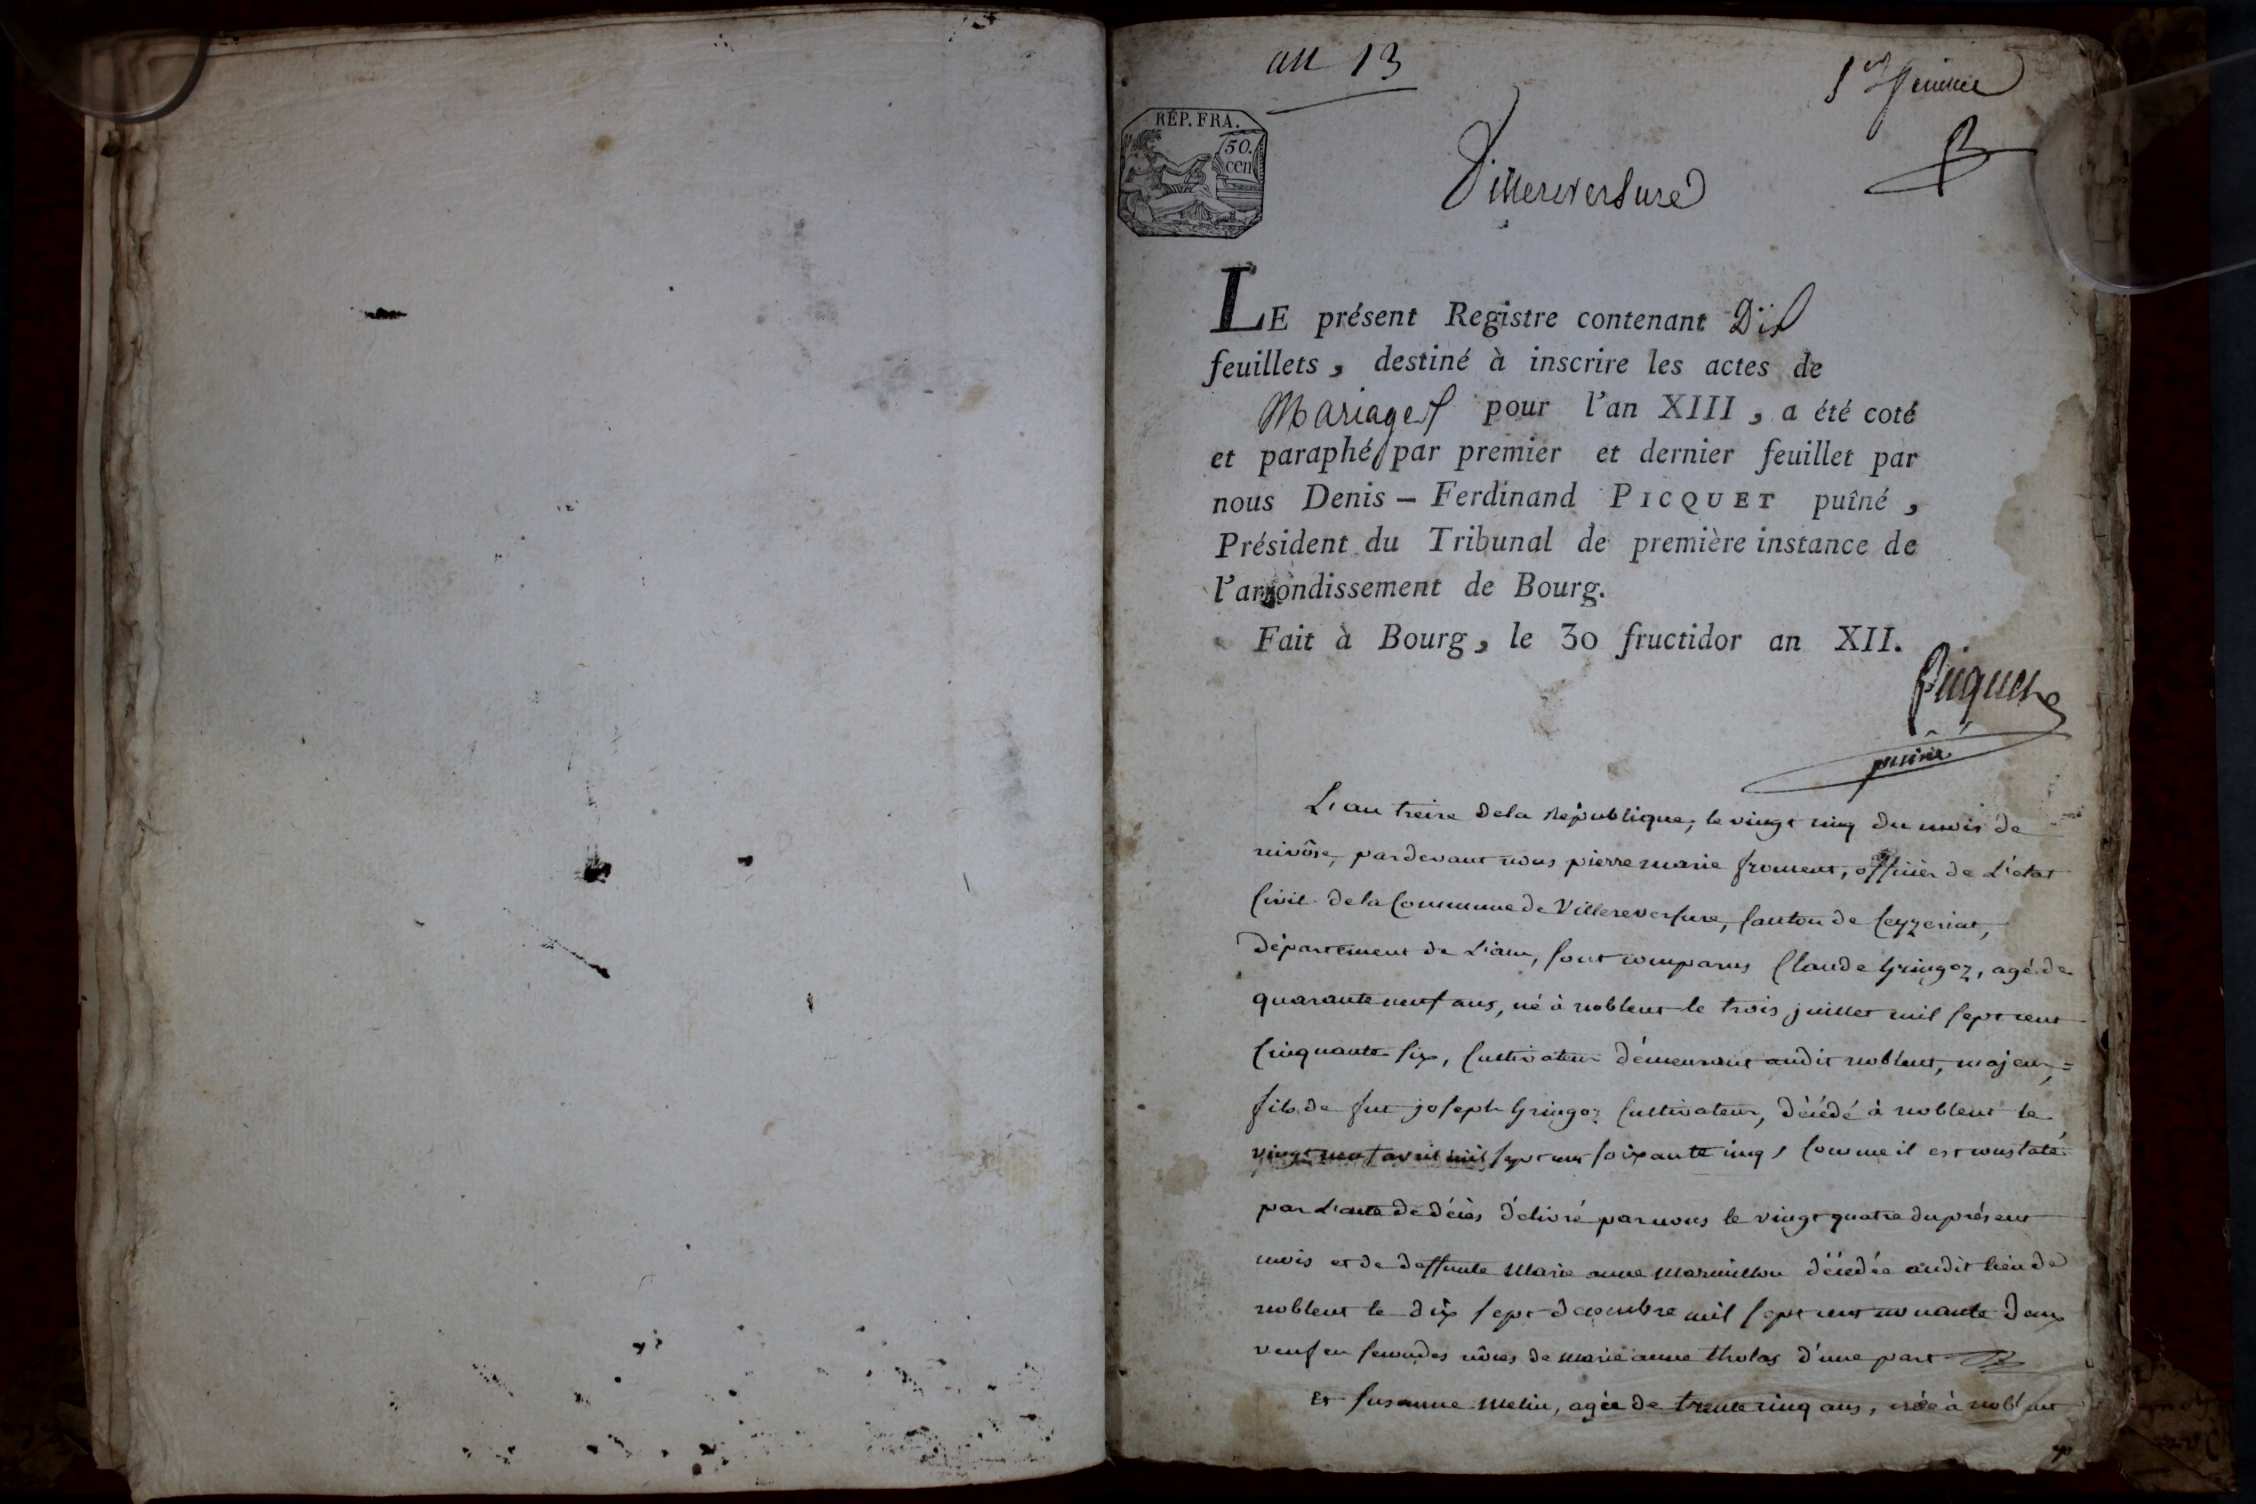 an 13
1er feuillet
RÉP. FRA.
50.
cen
Villereversure
LE présent Registre contenant Dix
feuillets, destiné à inscrire les actes de
Mariages pour l'an XIII, a été coté
et paraphé par premier et dernier feuillet par
nous Denis – Ferdinand PICQUET puîné,
Président du Tribunal de première instance de
l'arrondissement de Bourg.
Fait à Bourg, le 30 fructidor an XII.
Picquet
puiné
L'an treize de la République, le vingt cinq du mois de
nivôse, pardevant nous pierre marie froment, officier de L'état
Civil de la Commune de Villereversure, Canton de Ceyzeriat,
Département de L'ain, sont comparus Claude Gringoz, agé de
quarante neuf ans, né à noblent le trois juillet mil sept cent
Cinquante Six, Cultivateur démeurant audit noblent, majeur,=
fils de fut joseph Gringoz Cultivateur, décédé à noblent le
vingt neuf avril mil sept cent soixante cinq, Comme il est constaté
par L'acte de décès délivré par nous le vingt quatre du présent
mois et de deffunte Marie anne Marmillon décédée audit lieu de
noblent le dix sept decembre mil sept cent nonante deux
veuf en secondes nôces de marie anne tholas d'une part
Et Susanne Melin, agée de trente cinq ans, née à noblent